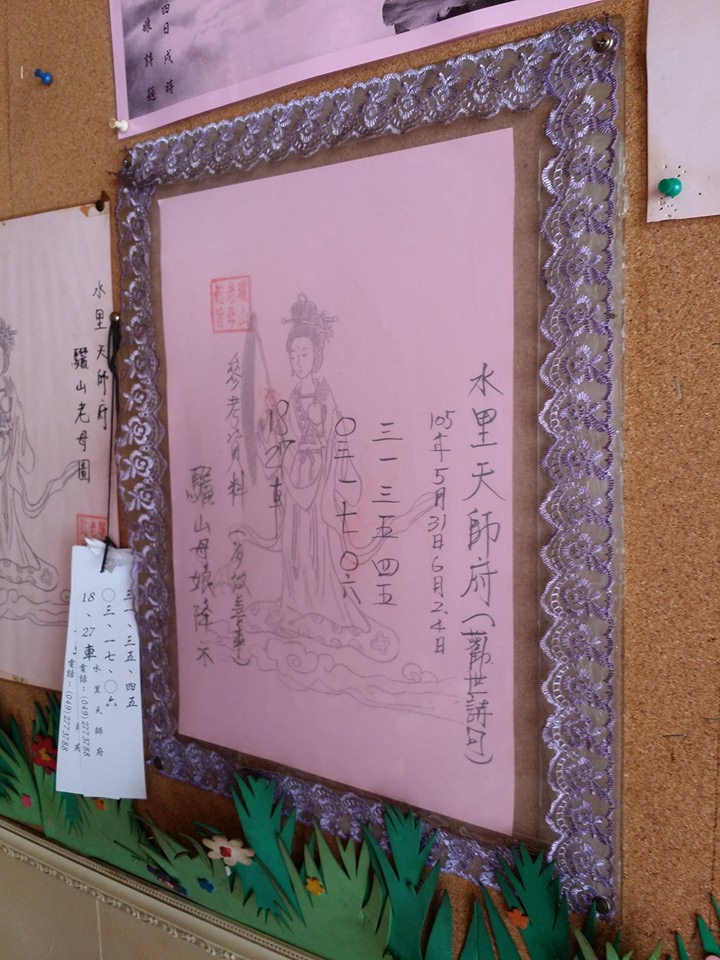 四日戌時
詩題
水里天師府
105年5月31日6月2.4日
三一三五四五
〇三一七〇六
18 27車
參考資料
驪山母娘降
驪山
老母
水里天師府
驪山老母圖
三一、三五、四五
〇三、一七、〇六
18、27車
水里天師府
電話：(049)2773788
電話：(049)2773788